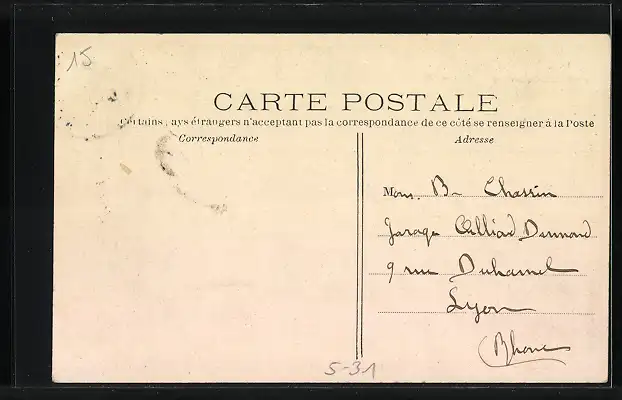 15
CARTE POSTALE
Certains pays étrangers n'acceptant pas la correspondance de ce côté se renseigner à la Poste
Correspondance
Adresse
Mons. B- Chassin
Garage
9 rue Duhamel
Lyon
(Rhone
5-31